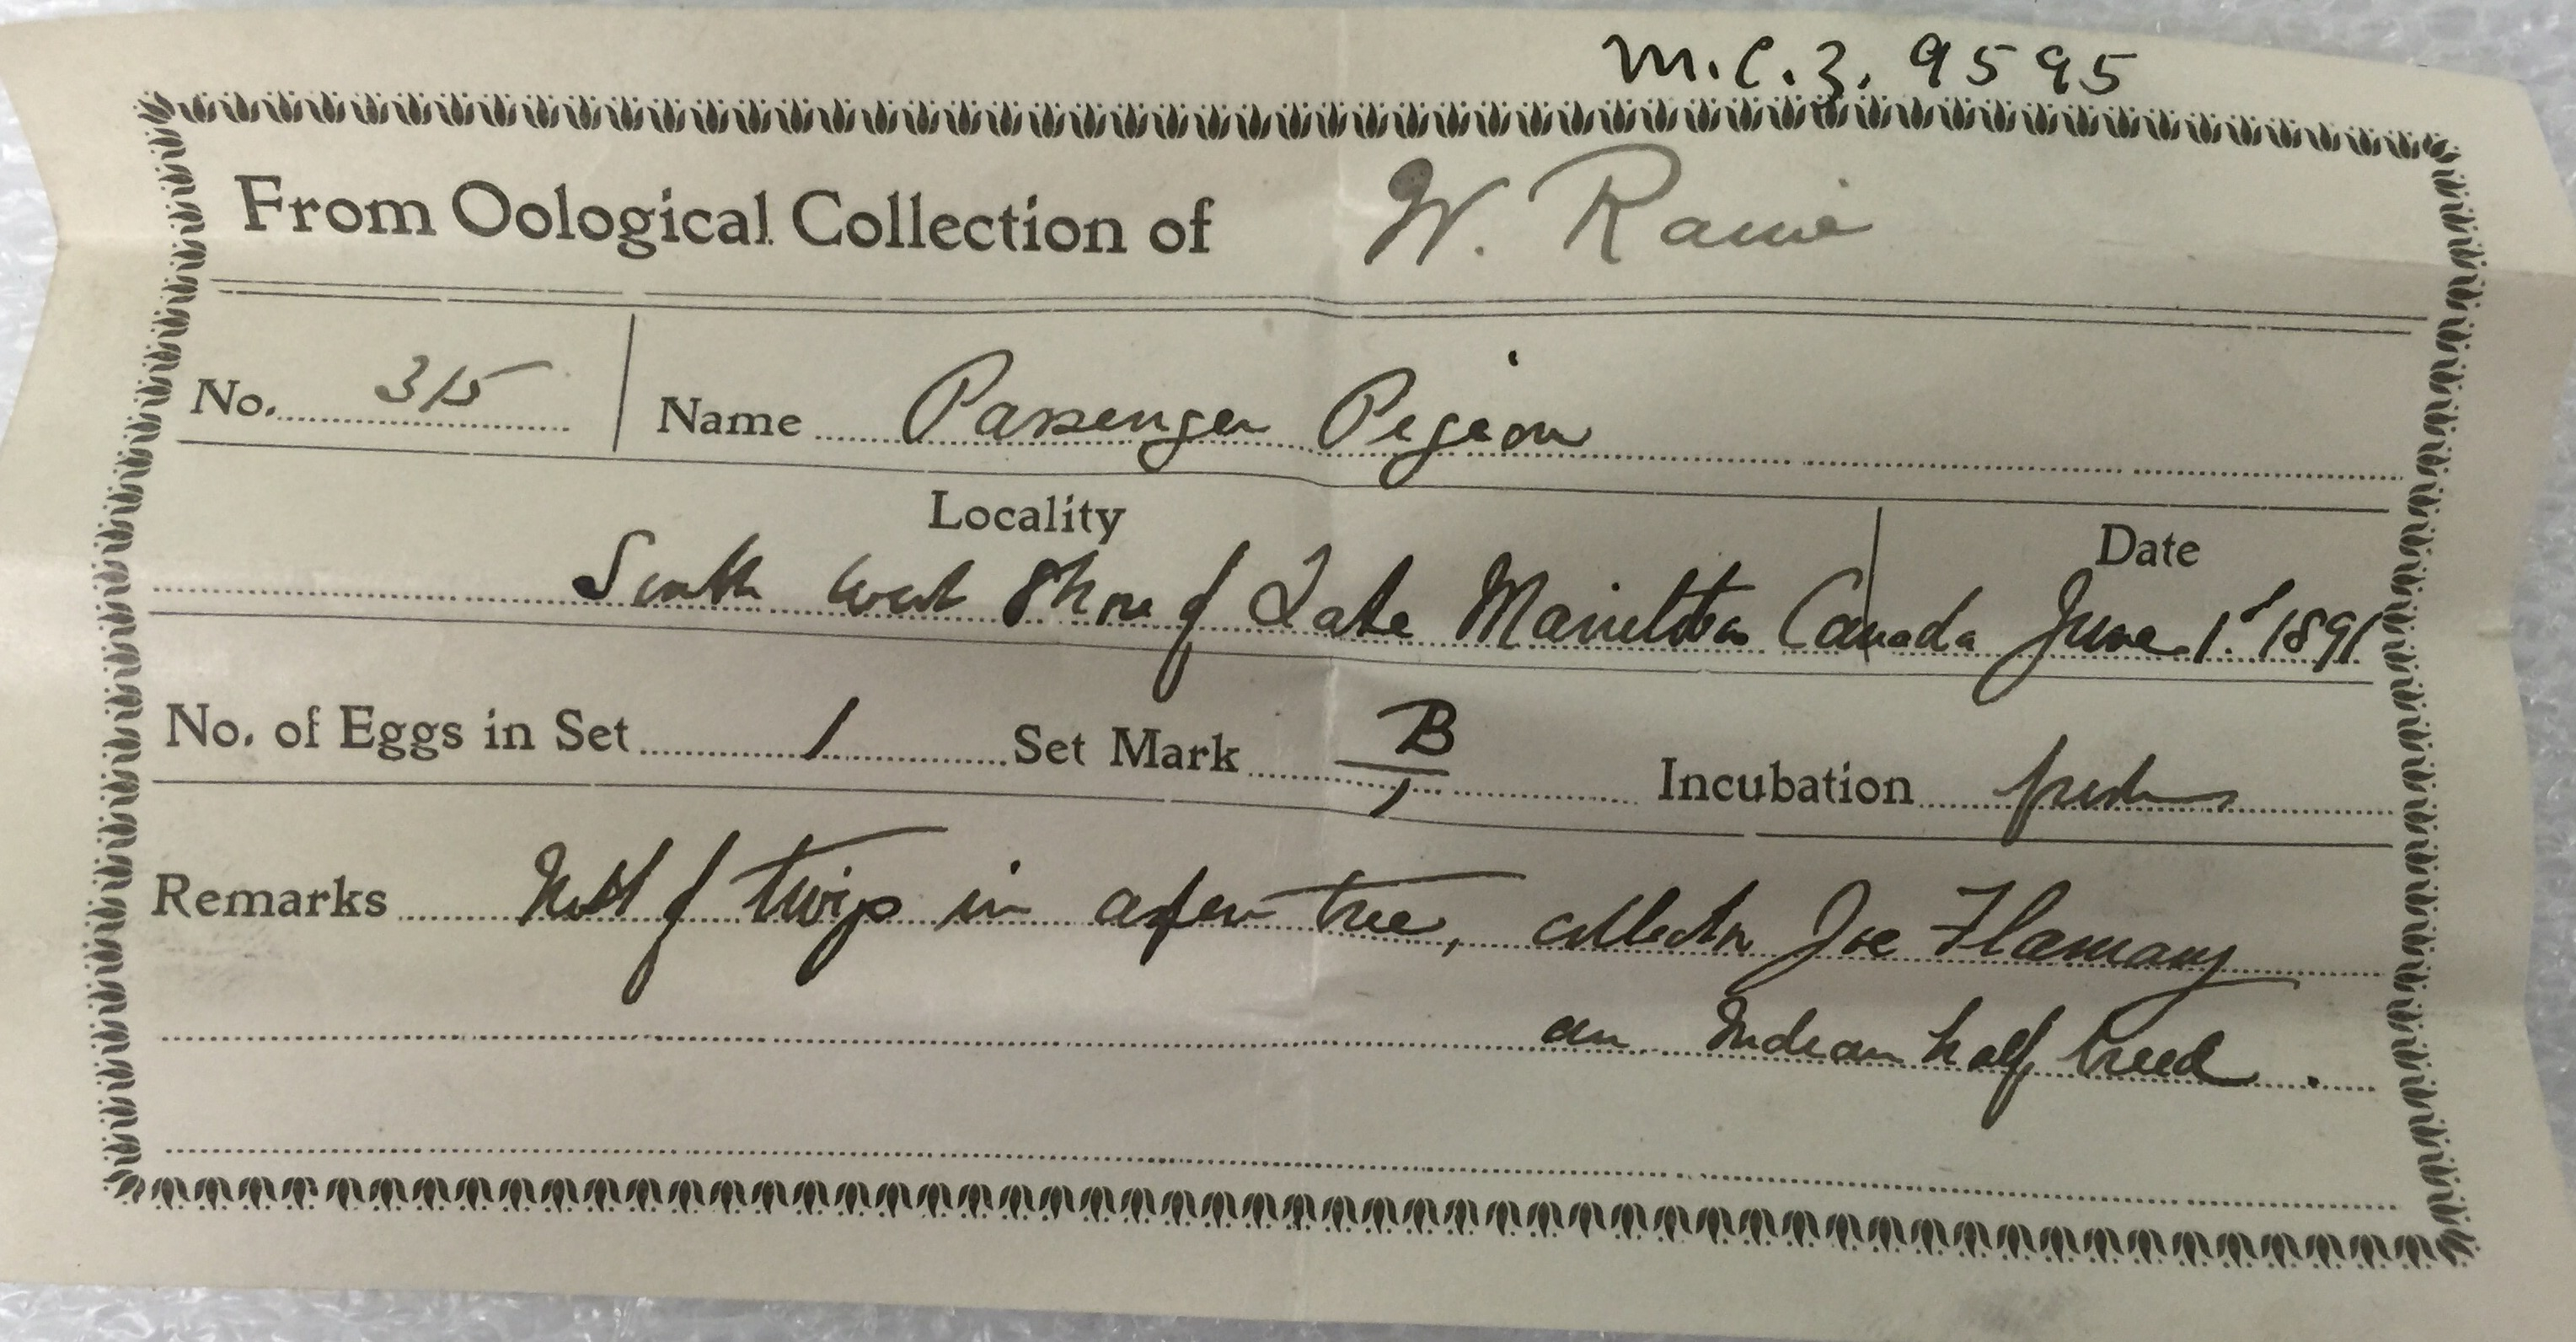 M.C.Z. 9595
From Oological Collection of W. Raine
No. 315 Name Passenger Pigeon
Locality Date
South west Shore of Lake Manitoba Canada June 1st 1891
No. of Eggs in Set 1 Set Mark B/1 Incubation fresh
Remarks Nest of twigs in aspen tree, collector Joe Flamany
an Indian half breed.